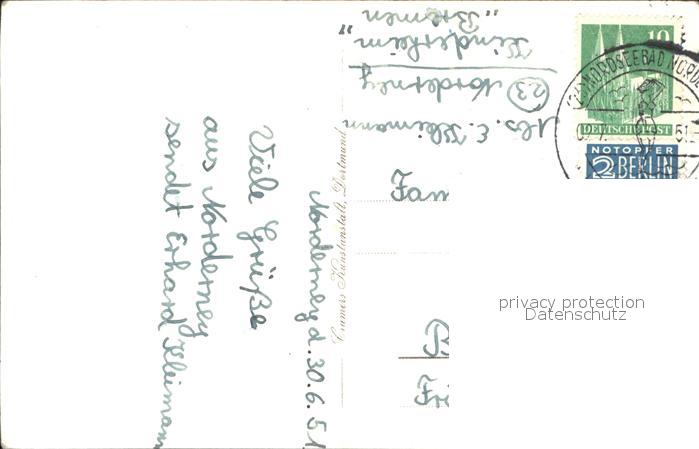 Norderney d. 30.6.51
Viele Grüße
aus Norderney
sendet Erhard Kleimann
Cramers Kunstanstalt, Dortmund
Abs. E. Kleimann
(23) Norderney
Kinderheim
„Bremen"
Fam
NORDSEEBAD NORD
10
DEUTSCHE POST
NOTOPFER
2 BERLIN
privacy protection
Datenschutz